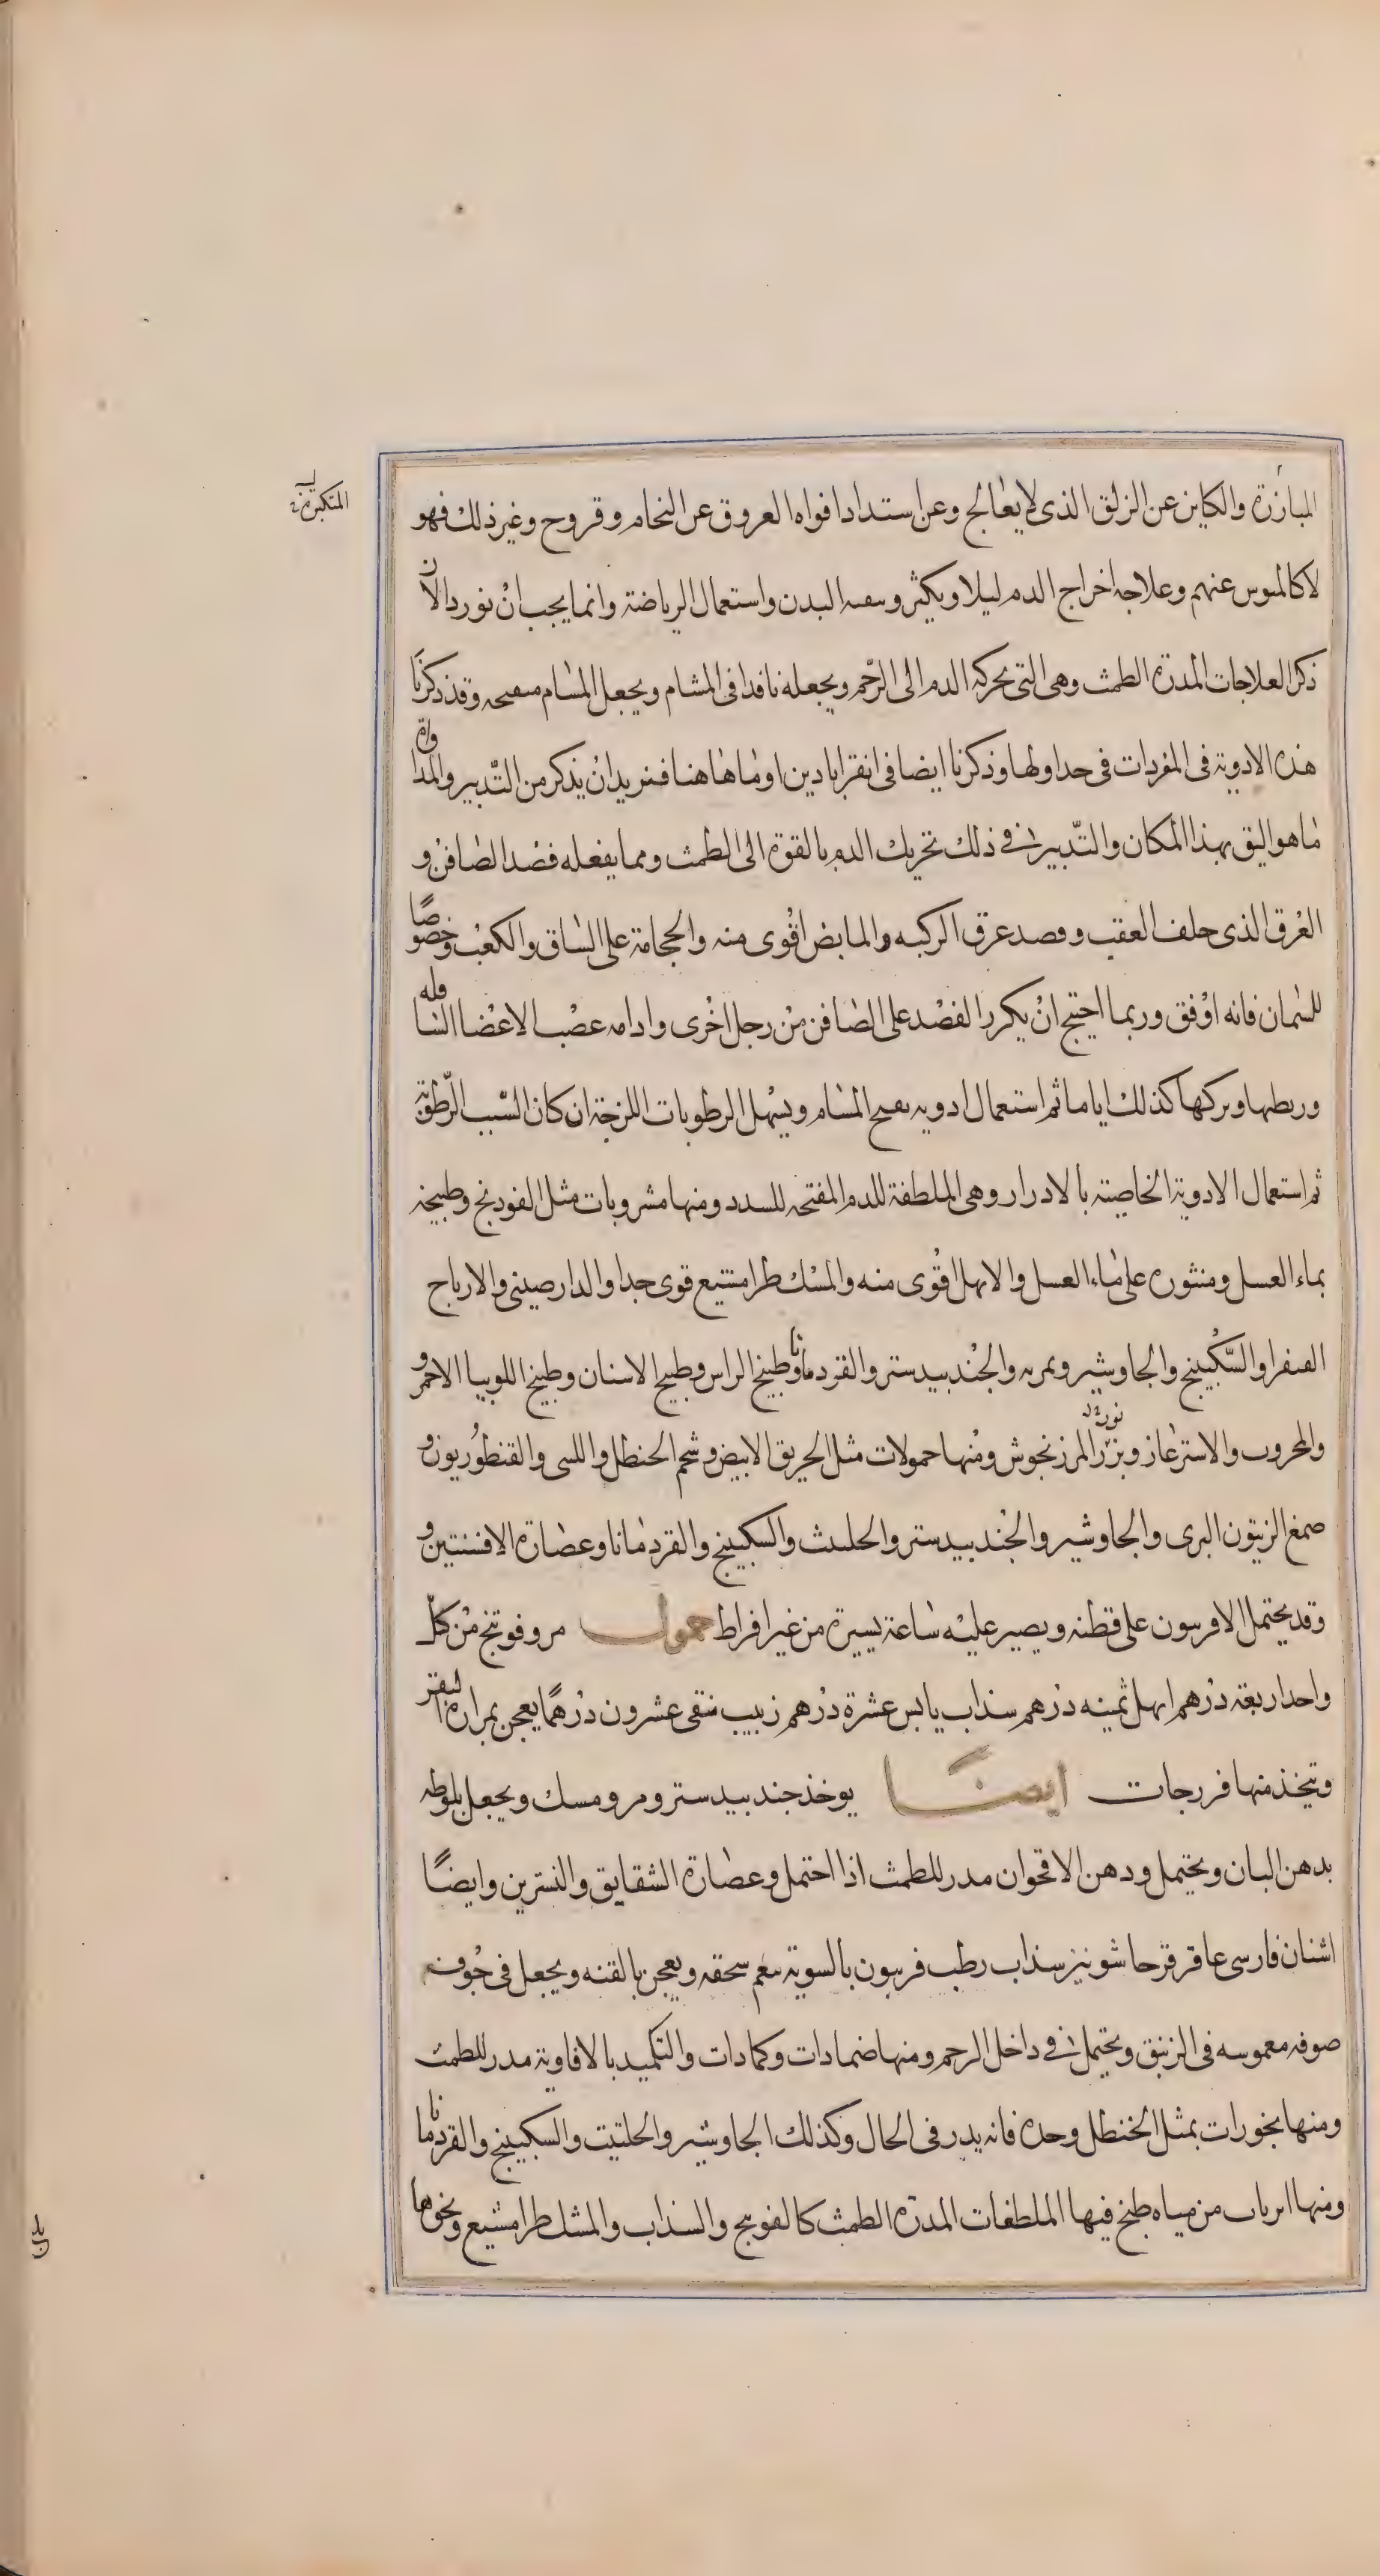 المبارزة والكاين عن الزلق الذى لا يعالج وعن استداد افواه العروق عن النحام وقروح وغير ذلك فهو
لا كالميوس عنهم وعلاجه اخراج الدم ليلا ويكثر وسعىه البدن واستعمال الرياضة وانما يجب ان نورد الان
ذكر العلاجات المدرة الطمث وهى التى يحركه الدم الى الرحم ويجعله نافدا فى المشام ويجعل المسام مىفىحه وقد ذكرنا
هذه الادوية فى المفردات فى جداولها وذكرنا ايضا فى انقراباذين اوماهاهنا فنريد ان يذكر من التدبير والمداواة
ما هو اليق بهذا المكان والتدبير فى ذلك تحريك الدم بالقوة الى الطمث ومما يفعله فصد الصافن و
العرق الذى خلف العقب وفصد عرق الركبه والمابض اقوى منه والحجامة على الساق والكعب وخصوصًا
للسمان فانه اوفق وربما احتيج ان يكرر الفصد على الصافن من رجل اخرى وادامه عصب الاعضا السافله
وربطها وىركها كذلك اياما ثم استعمال ادويه ىفىح المسام ويسهل الرطوبات اللزجة ان كان السبب الرطوبة
ثم استعمال الادوية الخاصية بالادرار وهى الملطفة للدم المفتحه للسدد ومنها مشروبات مثل الفودنج وطبيخه
بماء العسل ومنثوره على ماء العسل والابهل اقوى منه والمسك طرامشيع قوى جدا والدارصينى والارياح
الفيفرا والسكبينج والجاوشير وىمرىه والجندبيدستر والقردمانا وطبيخ الراس وطبيخ الاسنان وطبيخ اللوبيا الاحمر و
والمحروب والاسترعاز وبزر المرزنجوش ومنها حمولات مثل الحريق الابيض وشحم الحنظل واللسى والقنطوريون و
صمغ الزيتون البرى والجاوشير والجندبيدستر والحلىىث والسكبينج والقردمانا وعصارة الافسنتين و
وقد يحتمل الافرىىون على قطنه ويصير عليه ساعة يسيرة من غير افراط حمول مر وفوتنج من كل
واحد اربعة درهم ابهل ثمينه درهم سذاب يابس عشرة درهم زبيب منقى عشرون درهمًا يعجن بمرارة البقر
وتتخذ منها فررجات ايضًا يوخذ جندبيدستر ومر ومسك ويجعل بلوطه
بدهن البان ويحتمل ودهن الاقحوان مدر للطمث اذا احتمل وعصارة الشقايق والنسترين وايضًا
اشنان فارسى عاقرقرحا شونيز سذاب رطب فربيون بالسوية ىىعم سحقه ويعجن بالقنه ويجعل فى جوف
صوفه معموسه فى الزنبق ويحتمل فى داخل الرحم ومنها ضمادات وكمادات والتكميد بالافاوية مدر للطمث
ومنها بخورات بمثل الخنطل وحده فانه يدر فى الحال وكذلك الجاوشير والحلتيت والسكبينج والقردمانا
ومنها اىرىاب من مياه طبخ فيها الملطفات المدرة الطمث كالفوىىج والسذاب والمشك طرامشيع ونحوها